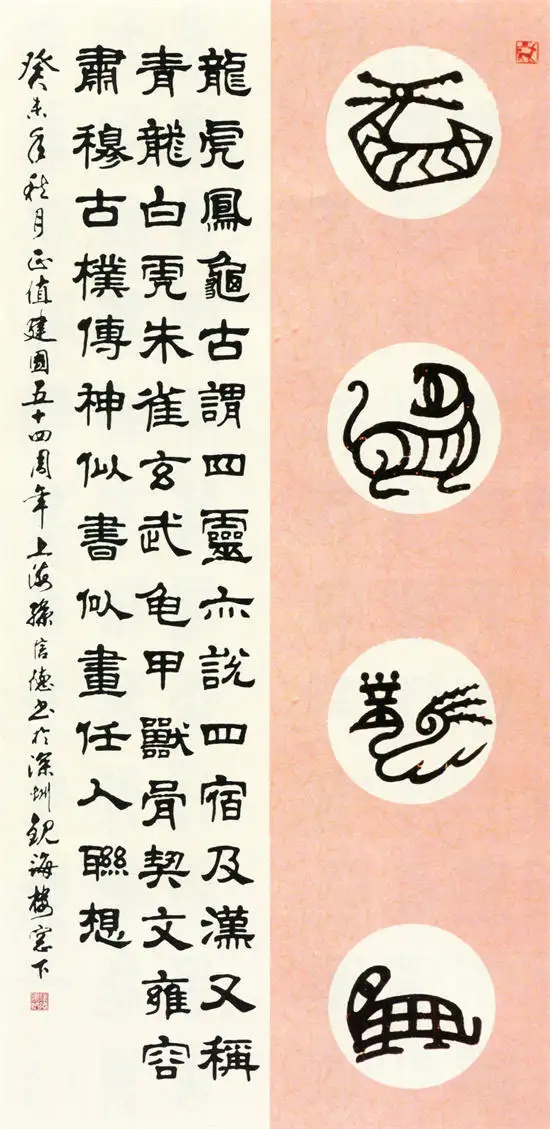 龍虎鳳龜古謂四靈亦説四宿及漢又稱
青龍白虎朱雀玄武龟甲獸骨契文雍容
肅穆古樸傳神似書似畫任人聯想
癸未年秋月正值建國五十四周年上海孫信德书於深圳觀海樓窓下